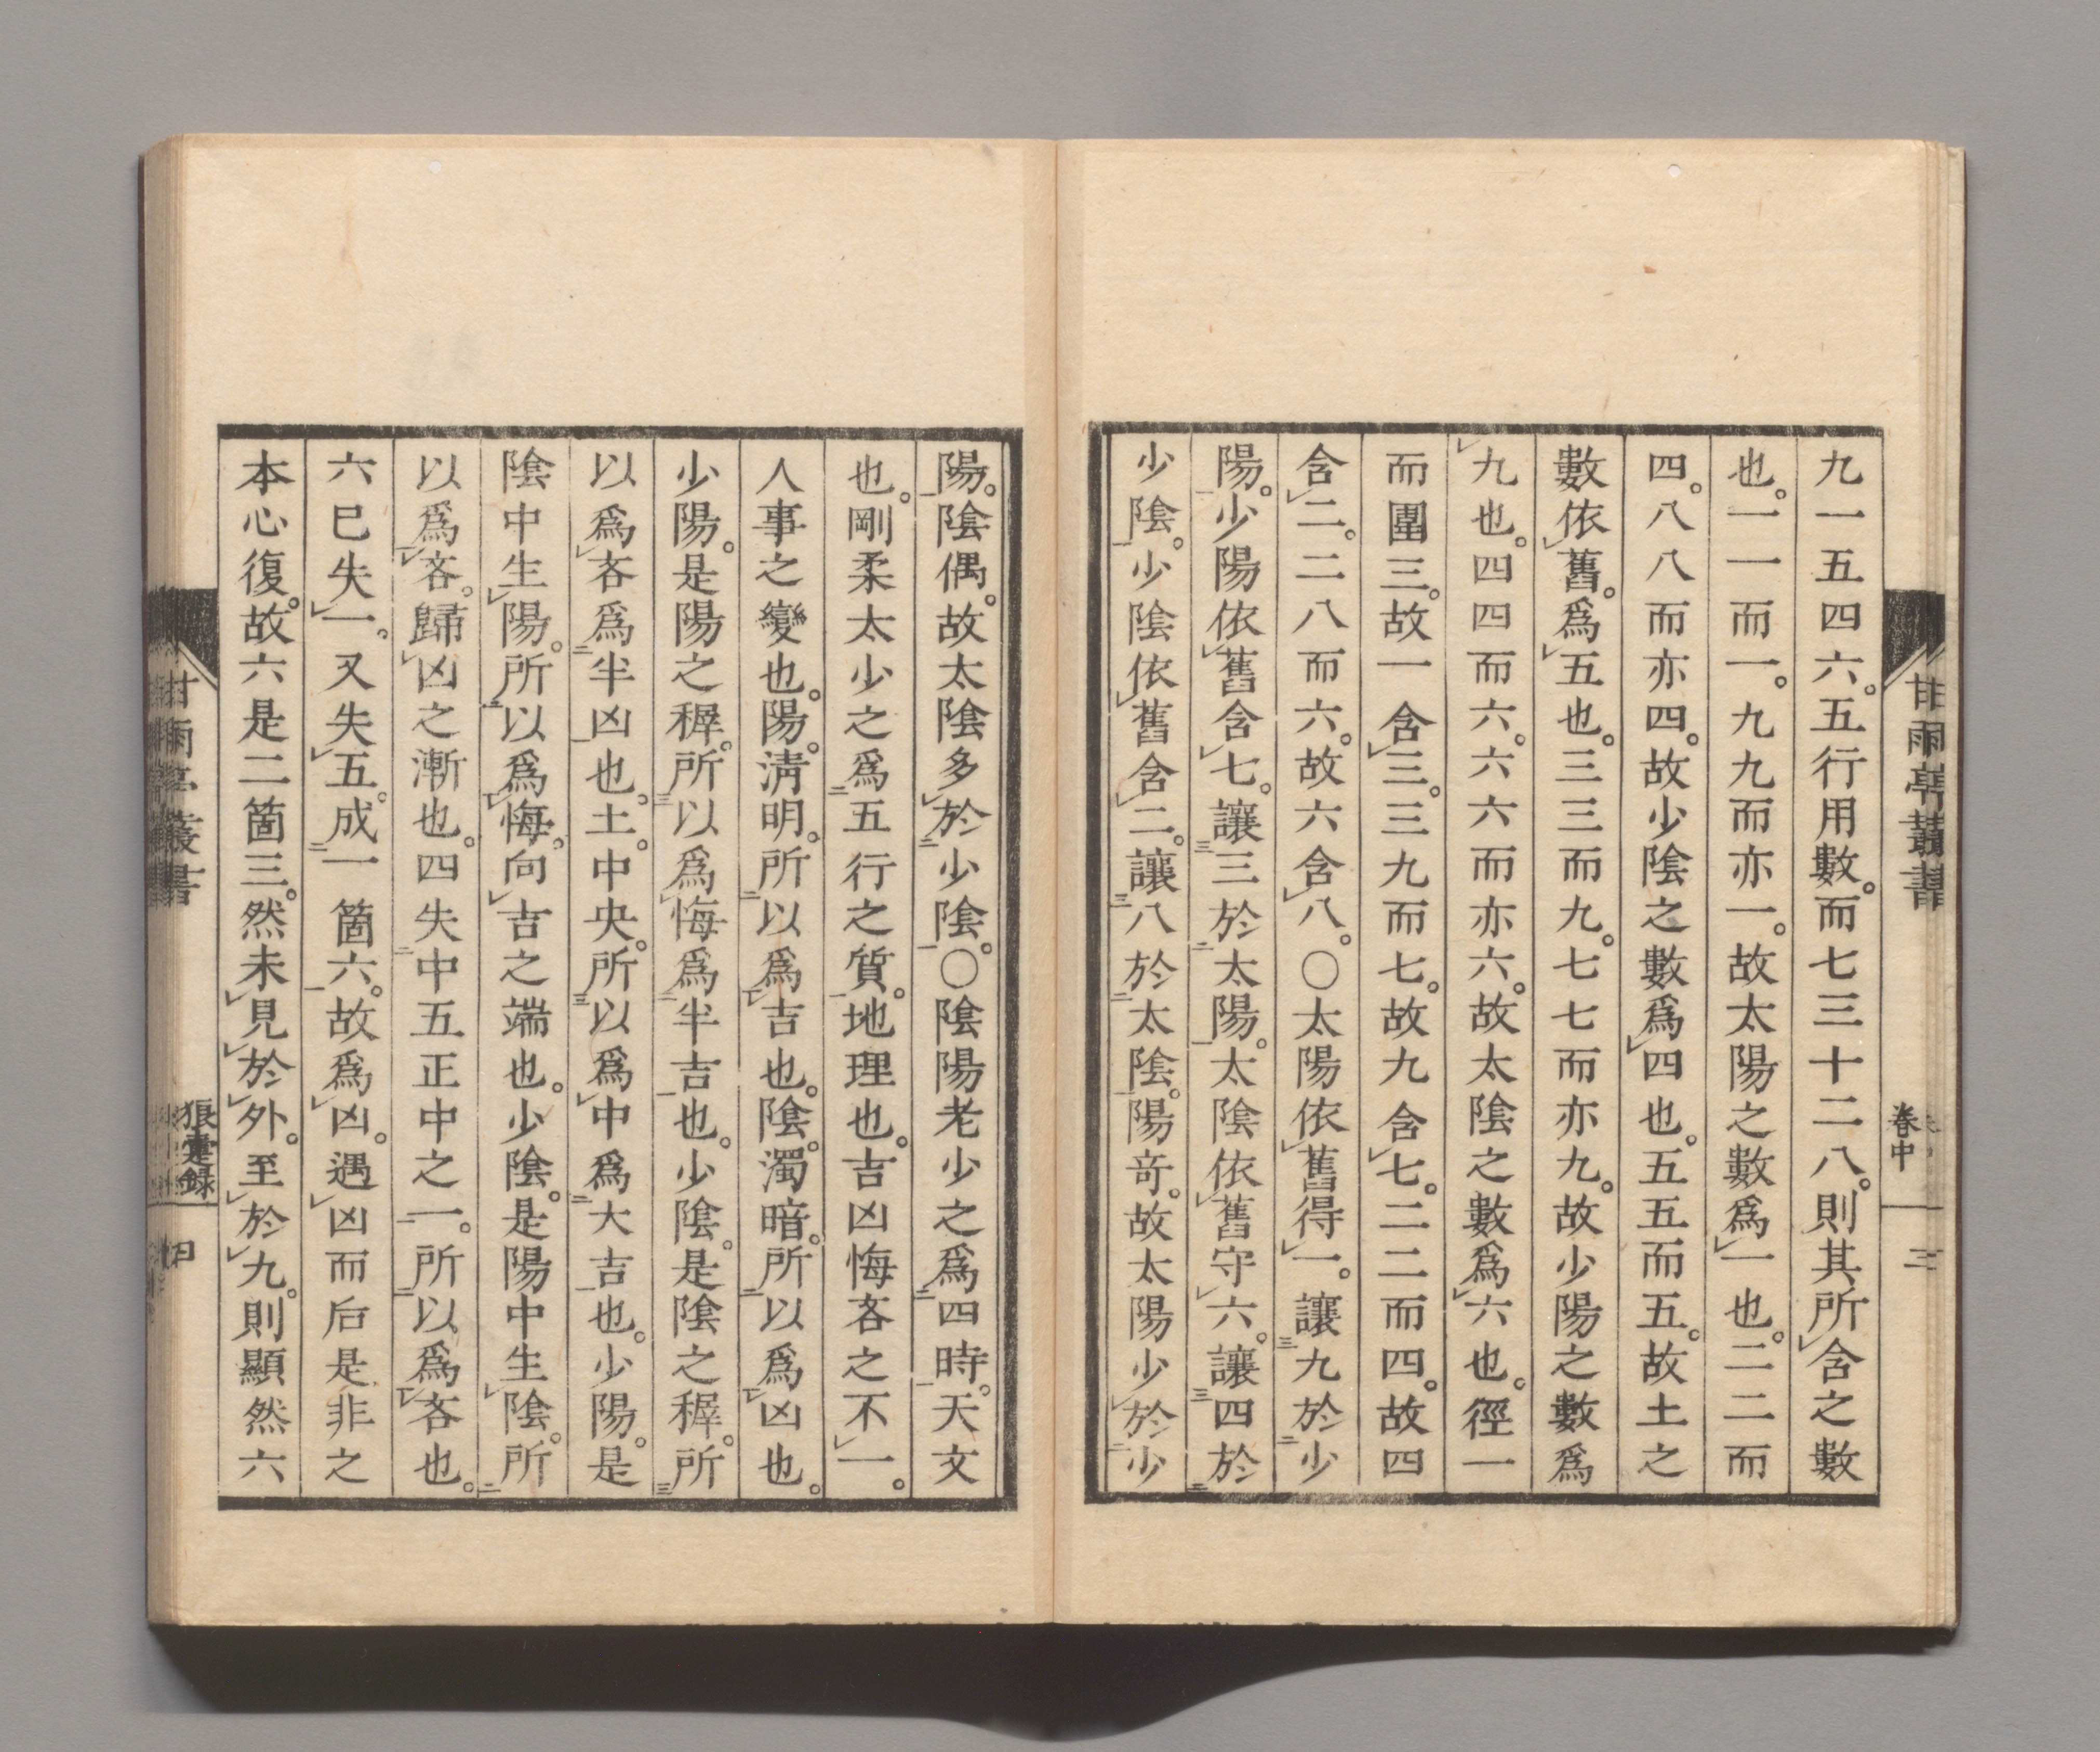 甘雨亭叢書
卷中
三
九一五四六。五行用數。而七三十二八。則其所含之數
也。一一而一。九九而亦一。故太陽之數爲一也。二二而
四。八八而亦四。故少陰之數爲四也。五五而五。故土之
數依舊。爲五也。三三而九。七七而亦九。故少陽之數爲
九也。四四而六。六六而亦六。故太陰之數爲六也。徑一
而圍三。故一含三。三九而七。故九含七。二二而四。故四
含二。二八而六。故六含八。〇太陽依舊得一。讓九於少
陽。少陽依舊含七。讓三於太陽。太陰依舊守六。讓四於
少陰。少陰依舊含二。讓八於太陰。陽奇。故太陽少於少
陽。陰偶。故太陰多於少陰。〇陰陽老少之爲四時。天文
也。剛柔太少之爲五行之質。地理也。吉凶悔吝之不一。
人事之變也。陽。淸明。所以爲吉也。陰。濁暗。所以爲凶也。
少陽。是陽之穉。所以爲悔爲半吉也。少陰。是陰之穉。所
以爲吝爲半凶也。土。中央。所以爲中爲大吉也。少陽。是
陰中生陽。所以爲悔。向吉之端也。少陰。是陽中生陰。所
以爲吝。歸凶之漸也。四失中五正中之一。所以爲吝也。
六已失一。又失五。成一箇六。故爲凶。遇凶而后是非之
本心復。故六是二箇三。然未見於外。至於九。則顯然六
甘雨亭叢書
狼疐錄
四